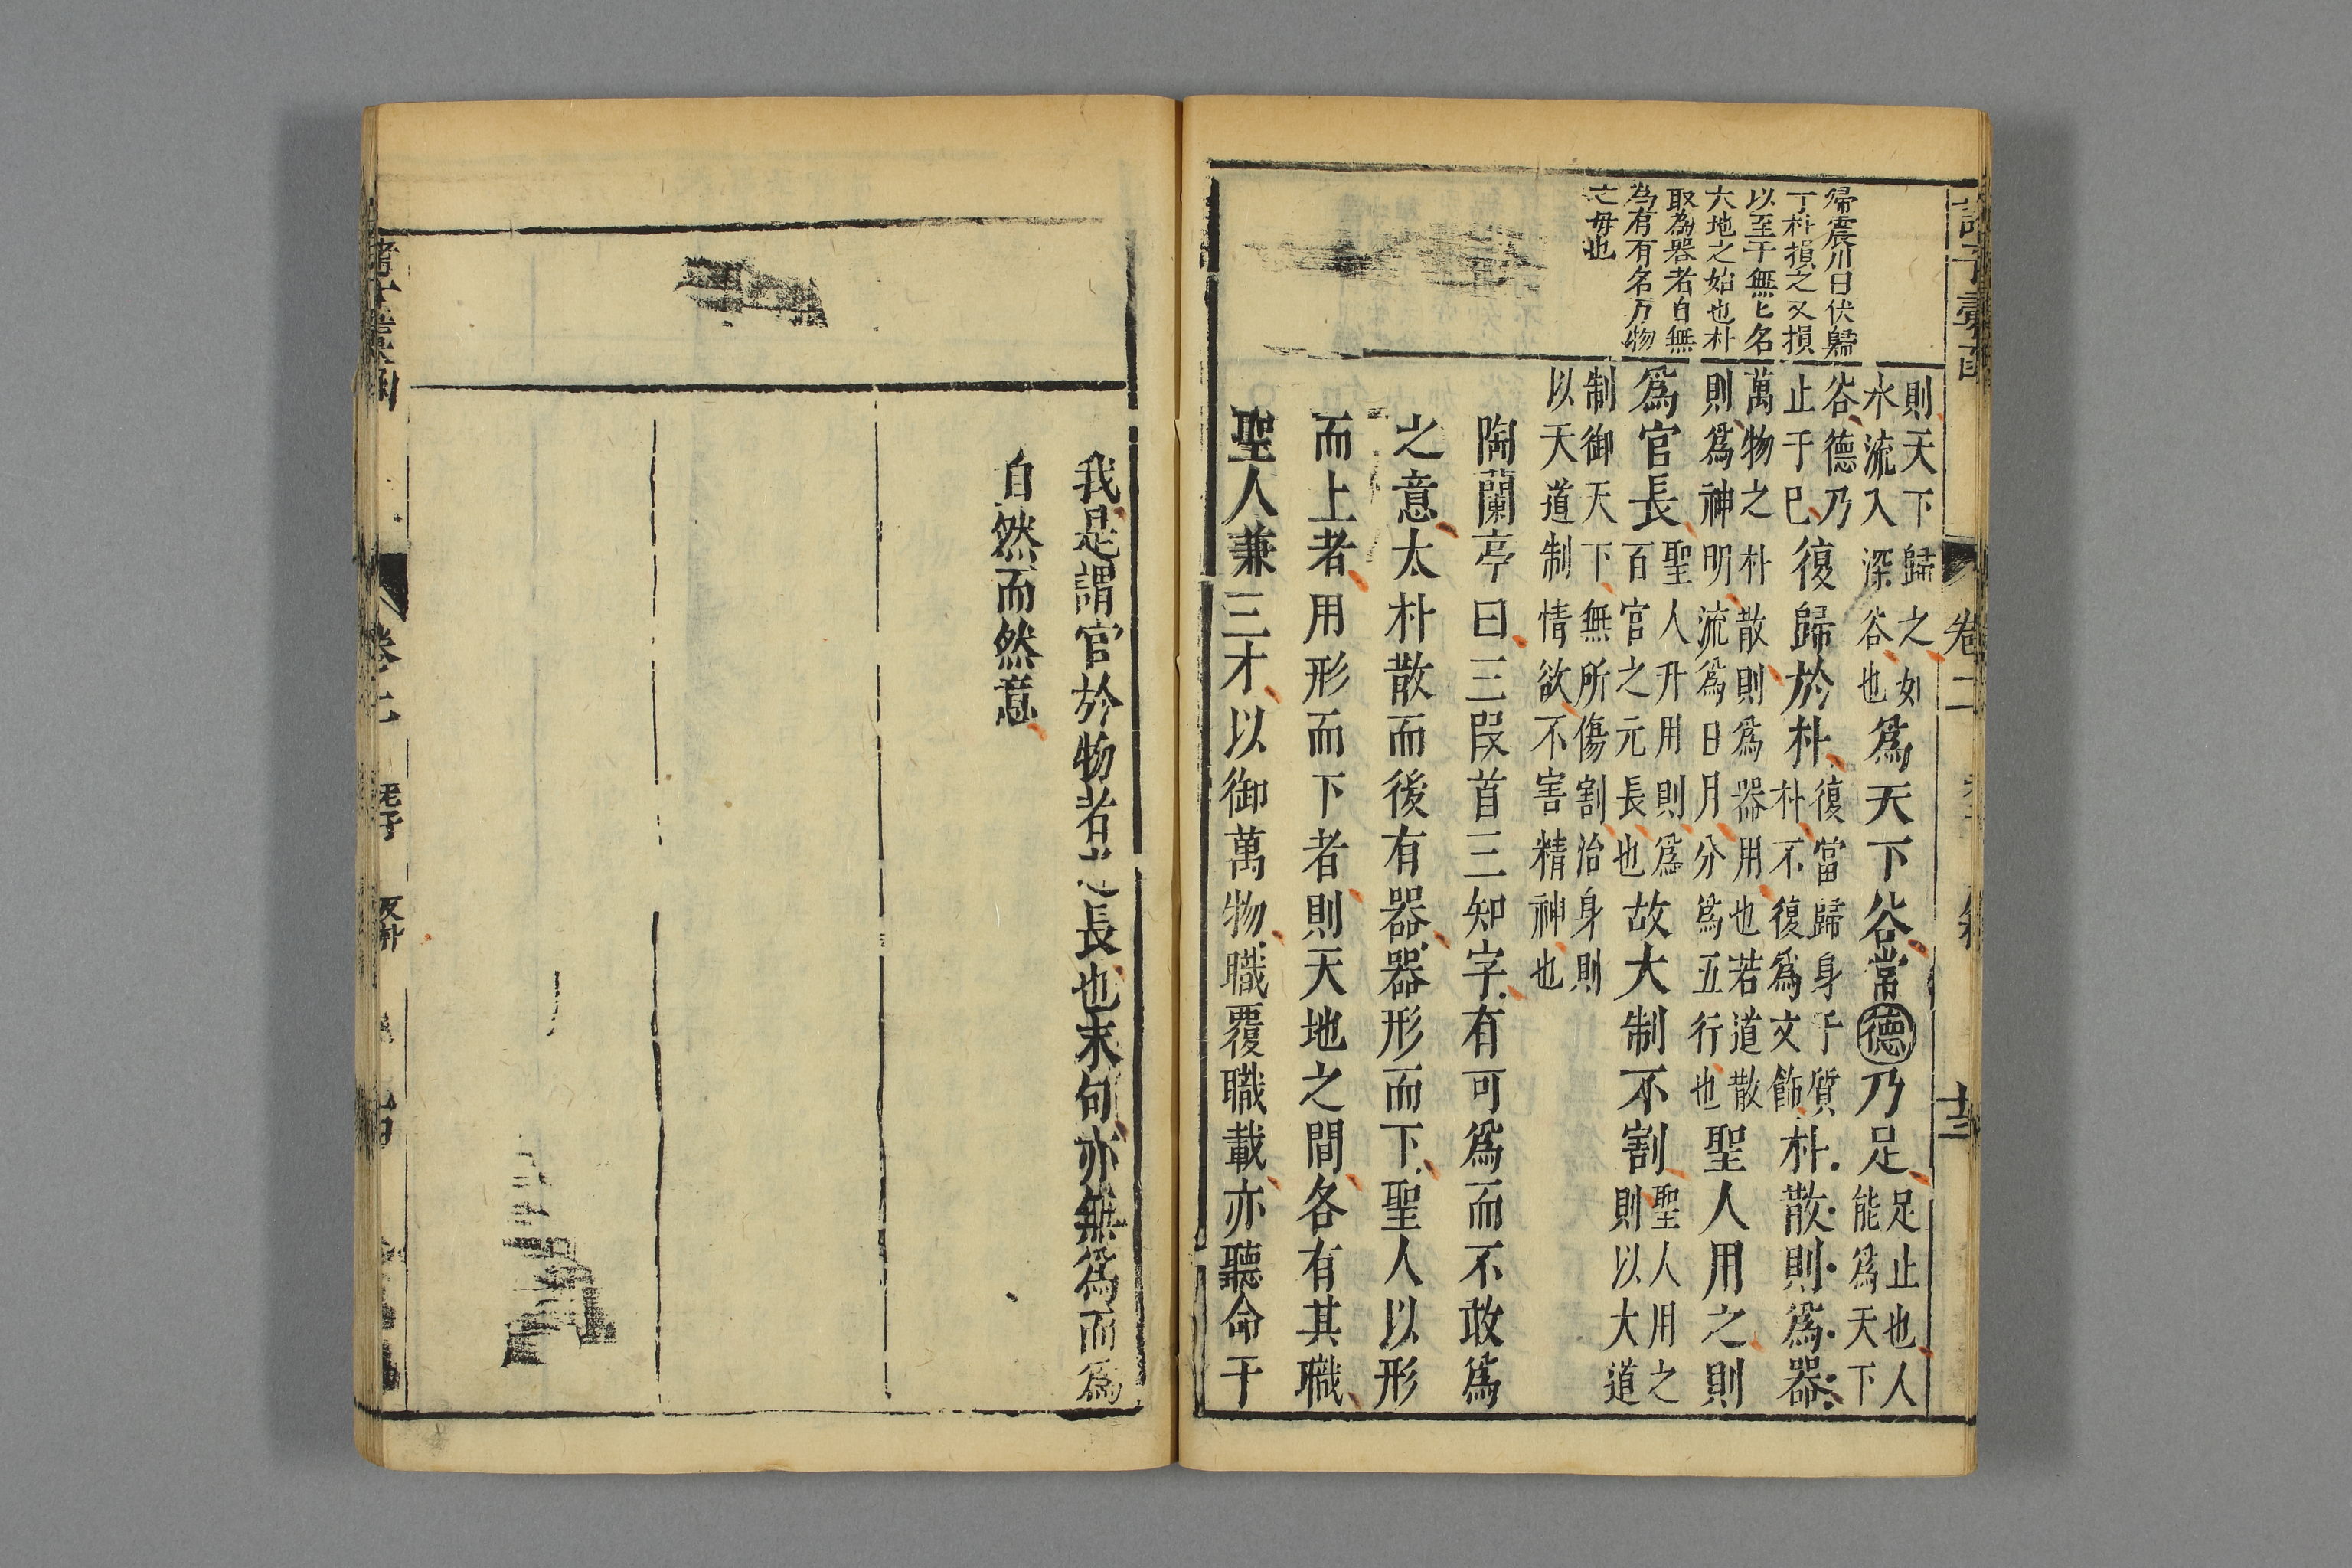 歸震川曰伏歸
丁朴損之又損
以至于無上名
大地之始也朴
取為器者自無
為有有名万物
之毋也
則天下歸之如
水流入深谷也
為天下谷常德乃足
足止也人
能爲天下
谷德乃
止于巳
復歸於朴
復當歸身于質
朴不復爲文飾
朴散則爲器
萬物之朴散則爲器用也若道散
則爲神明流爲日月分爲五行也
聖人用之則
爲官長
聖人升用則爲
百官之元長也
故大制不割
聖人用之
則以大道
制御天下無所傷割治身則
以天道制情欲不害精神也
陶蘭亭曰三叚首三知字有可爲而不敢爲
之意太朴散而後有器器形而下聖人以形
而上者用形而下者則天地之間各有其職
聖人兼三才以御萬物職覆職載亦聽命于
卷二
我是謂官於物者之長也末句亦無爲而爲
自然而然意
老子
反朴